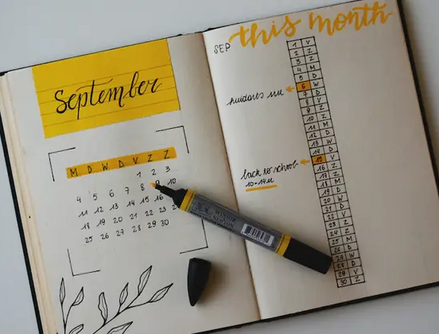 September
M D W D V Z Z
1 2 3
4 5 6 7 8 9 10
11 12 13 14 15 16
18 19 20 21 22
25 26 27 28 29 30
SEP this month
1 V
2 Z
3 Z
4 M
5 D
6 W
7 D
8 V
9 Z
10 Z
11 M
12 D
13 W
14 D
15 V
16 Z
17 Z
18 M
19 D
20 W
21 D
22 V
23 Z
24 Z
25 M
26 D
27 W
28 D
29 V
30 Z
back to school
10-14u